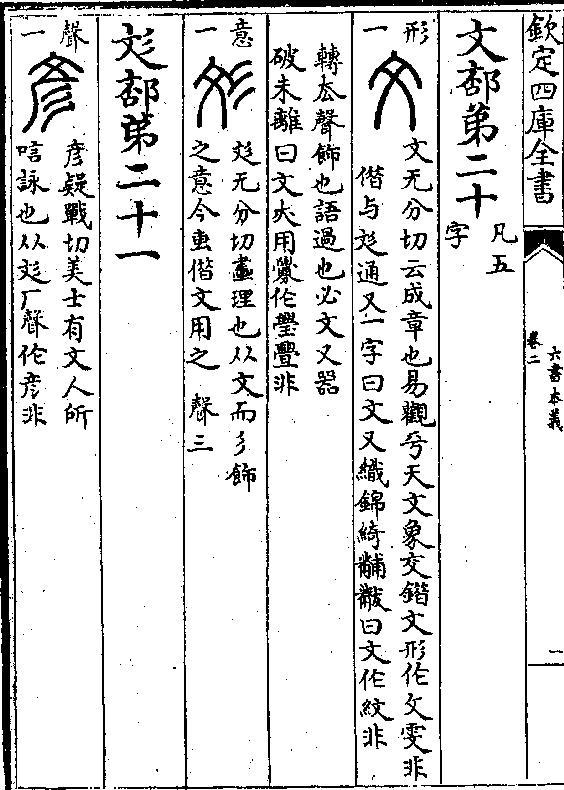 欽定四庫全書
卷二
六書本義
一
文部第二十
凡五
字
形
一
文无分切云成章也易觀兮天文象交錯文形作攵雯非
偕与彣通又一字曰文又織錦綺黼黻曰文作紋非
轉去聲飾也語過也必文又器
破未離曰文大用釁作璺亹非
意
一
彣无分切畫理也从文而彡飾
之意今重偕文用之
聲三
彣部第二十一
聲
一
彥
彥疑戰切美士有文人所
唁詠也从彣厂聲作彦非